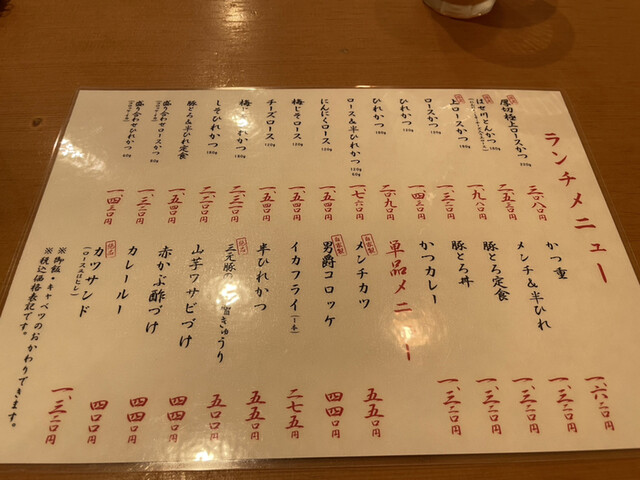 ランチメニュー
厚切極上ロースかつ 三、〇八〇円
はせ川とんかつ 二、五三〇円
上ロースかつ 一、九八〇円
ロースかつ 120g 一、三二〇円
ひれかつ 120g 一、四三〇円
ひれかつ 180g 二、〇九〇円
ロース&半ひれかつ 一、七六〇円
にんにくロース 120g 一、五四〇円
梅じそロース 120g 一、五四〇円
チーズロース 120g 一、五四〇円
梅 ひれかつ 180g
しそひれかつ 180g 二、二〇〇円
豚とろ&半ひれ定食 一、五四〇円
盛り合わせロースかつ 一、三二〇円
盛り合わせひれかつ 一、四三〇円
かつ重 一、六二〇円
メンチ&半ひれ 一、三二〇円
豚とろ定食 一、三二〇円
豚とろ丼 一、三二〇円
かつカレー 一、三二〇円
単品メニュー
自家製 メンチカツ 五五〇円
自家製 男爵コロッケ 四四〇円
イカフライ(一本) 二七五円
半ひれかつ 五五〇円
三元豚の きゅうり 五〇〇円
山芋ワサビづけ 四四〇円
赤かぶ酢づけ 四四〇円
カレールー 四四〇円
カツサンド(ロース又はヒレ) 一、三二〇円
※御飯・キャベツのおかわりできます。
※税込価格表記です。